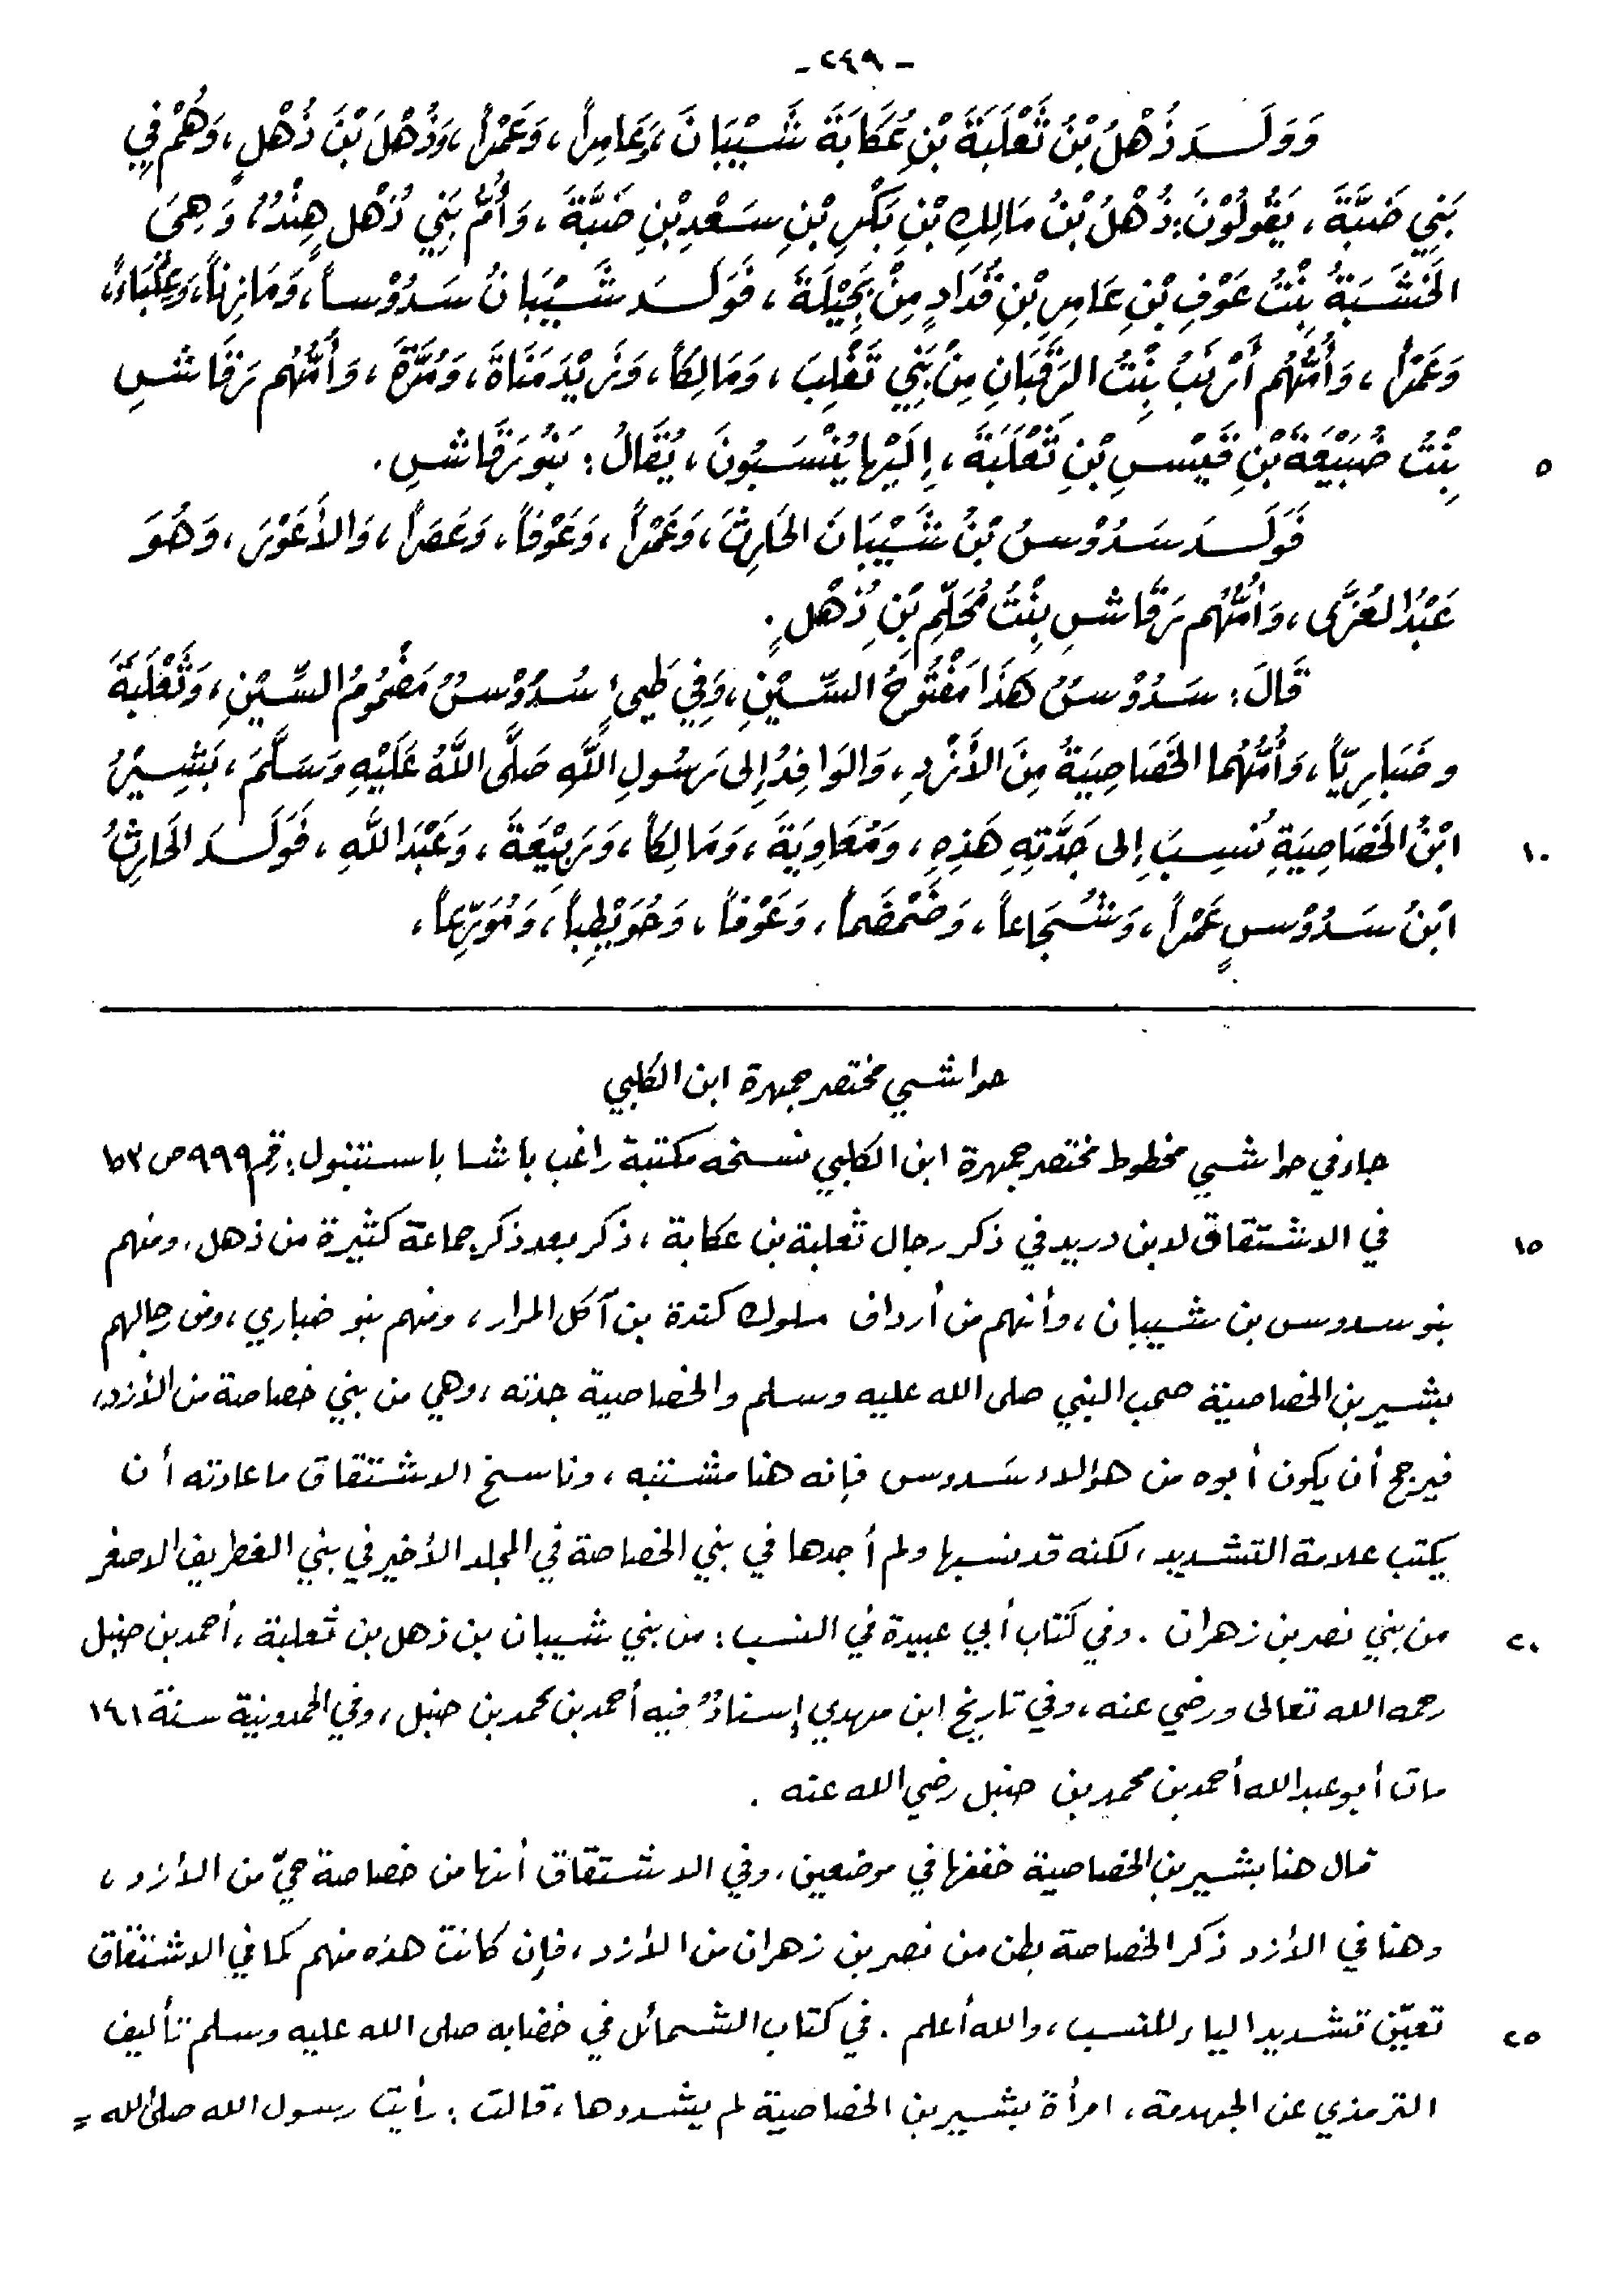 - ٢٤٩ -
وَوَلَـدَ ذُهْلُ بْنُ ثَعْلَبَةَ بْنِ عُكَابَةَ شَيْبَانَ، وَعَامِراً، وَعَمْراً، وَذُهْلَ بْنَ ذُهْلٍ، وَهُمْ فِي
بَنِي ضَبَّةَ، يَقُولُوْنَ: ذُهْلُ بْنُ مَالِكِ بْنِ بَكْرِ بْنِ سَعْدِ بْنِ ضَبَّةَ، وَأُمُّ بَنِي ذُهْلٍ هِنْدُ، وَهِيَ
الخَشَبَةُ بِنْتُ عَوْفِ بْنِ عَامِرِ بْنِ قُدَادٍ مِنْ بَجِيْلَةَ، فَوَلَـدَ شَيْبَانُ سَدُوْساً، وَمَازِناً، وَعِلْبَاءَ،
وَعَمْراً، وَأُمُّهُم أَرْنَبُ بِنْتُ الرَّقَبَانِ مِنْ بَنِي تَغْلِبَ، وَمَالِكاً، وَزَيْدَ مَنَاةَ، وَمُرَّةَ، وَأُمُّهُم رَقَاشِ
٥ بِنْتُ ضُبَيْعَةَ بْنِ قَيْسِ بْنِ ثَعْلَبَةَ، إِلَيْهَا يُنْسَبُونَ، يُقَالُ: بَنُو رَقَاشِ.
فَوَلَـدَ سَدُوْسُ بْنُ شَيْبَانَ الحَارِثَ، وَعَمْراً، وَعَوْفاً، وَعَصَراً، وَالأَعْوَرَ، وَهُوَ
عَبْدُ العُزَّى، وَأُمُّهُم رَقَاشِ بِنْتُ مُحَلِّمِ بْنِ ذُهْلٍ.
قَالَ: سَدُوْسُ هَذَا مَفْتُوحُ السِّيْنِ، وَفِي طَيِّئ سُدُوْسُ مَضْمُومُ السِّيْنِ، وَثَعْلَبَةَ
وضَبَارِيّاً، وَأُمُّهُما الخَصَاصِيَةُ مِنَ الأَزْدِ، وَالوَافِدُ إِلى رَسُولِ اللَّهِ صَلَّى اللَّهُ عَلَيْهِ وَسَلَّمَ، بَشِيْرُ
١٠ ابْنُ الخَصَاصِيَةِ نُسِبَ إِلى جَدَّتِهِ هَذِهِ، وَمُعَاوِيَةَ، وَمَالِكاً، وَرَبِيْعَةَ، وَعَبْدَ اللَّهِ، فَوَلَـدَ الحَارِثُ
ابْنُ سَدُوْسٍ عَمْراً، وَشُجَاعاً، وَضَمْضَماً، وَعَوْفاً، وَحُوَيْطِباً، وَمُوَرِّعاً،
حواشي مختصر جمهرة ابن الكلبي
جاء في حواشي مخطوط مختصر جمهرة ابن الكلبي نسخه مكتبة راغب باشا باستنبول: رقم ٩٩٩ ص
١٥ في الاشتقاق لابن دريد في ذكر رجال ثعلبة بن عكابة، ذكر بعد ذكر جماعة كثيرة من ذهل، ومنهم
بنو سدوس بن شيبان، وأنهم من أرداف ملوك كندة بن آكل المرار، ومنهم بنو ضباري، ومن رجالهم
بشير بن الخصاصيّة صحب النبي صلى الله عليه وسلم والخصاصية جدته، وهي من بني خصاصة من الأزد،
فيرجح أن يكون أبوه من هؤلاء سَدوس فإنه هنا مشتبه، وناسخ الاشتقاق ما عادته أن
يكتب علامة التشديد، لكنه قد نسبها ولم أجدها في بني الخصاصة في المجلد الأخير في بني الغطريف الاصغر
٢٠ من بني نصر بن زهران. وفي كتاب أبي عبيدة في النسب: من بني شيبان بن ذهل بن ثعلبة، أحمد بن حنبل
رحمه الله تعالى ورضي عنه، وفي تاريخ ابن مهدي إسنادٌ فيه أحمد بن محمد بن حنبل، وفي الحمدونية سنة ٢٤١
مات أبو عبد الله أحمد بن محمد بن حنبل رضي الله عنه.
قال هنا بشير بن الخصاصية خففها في موضعين، وفي الاشتقاق أنها من خصاصة حيّ من الأزد،
وهنا في الأزد ذكر الخصاصة بطن من نصر بن زهران من الأزد، فإن كانت هذه منهم كما في الاشتقاق
٢٥ تعيّن تشديد الياء للنسب، والله أعلم. في كتاب الشمائل في خضابه صلى الله عليه وسلم تأليف
الترمذي عن الجهدمة، امرأة بشير بن الخصاصية لم يشددها، قالت: رأيت رسول الله صلى الله =